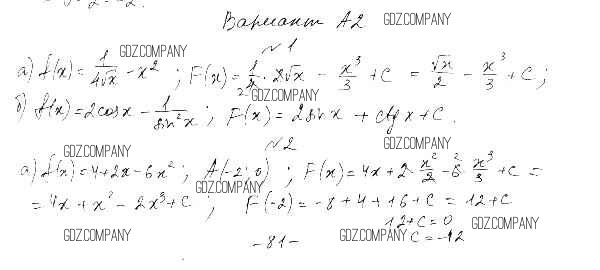 Вариант А2 GDZ.COMPANY
GDZ.COMPANY №1
а) f(x) = 1/(4√x) - x² ; F(x) = 1/4 · 2√x - x³/3 + C = √x/2 - x³/3 + C ;
GDZ.COMPANY
б) f(x) = 2cosx - 1/sin²x ; F(x) = 2sinx + ctgx + C .
GDZ.COMPANY №2 GDZ.COMPANY
а) f(x) = 4 + 2x - 6x² ; A(-2; 0) ; F(x) = 4x + 2 x²/2 - 6 x³/3 + C =
GDZ.COMPANY
= 4x + x² - 2x³ + C ; F(-2) = -8 + 4 + 16 + C = 12 + C
12 + C = 0 GDZ.COMPANY
GDZ.COMPANY -81- GDZ.COMPANY C = -12